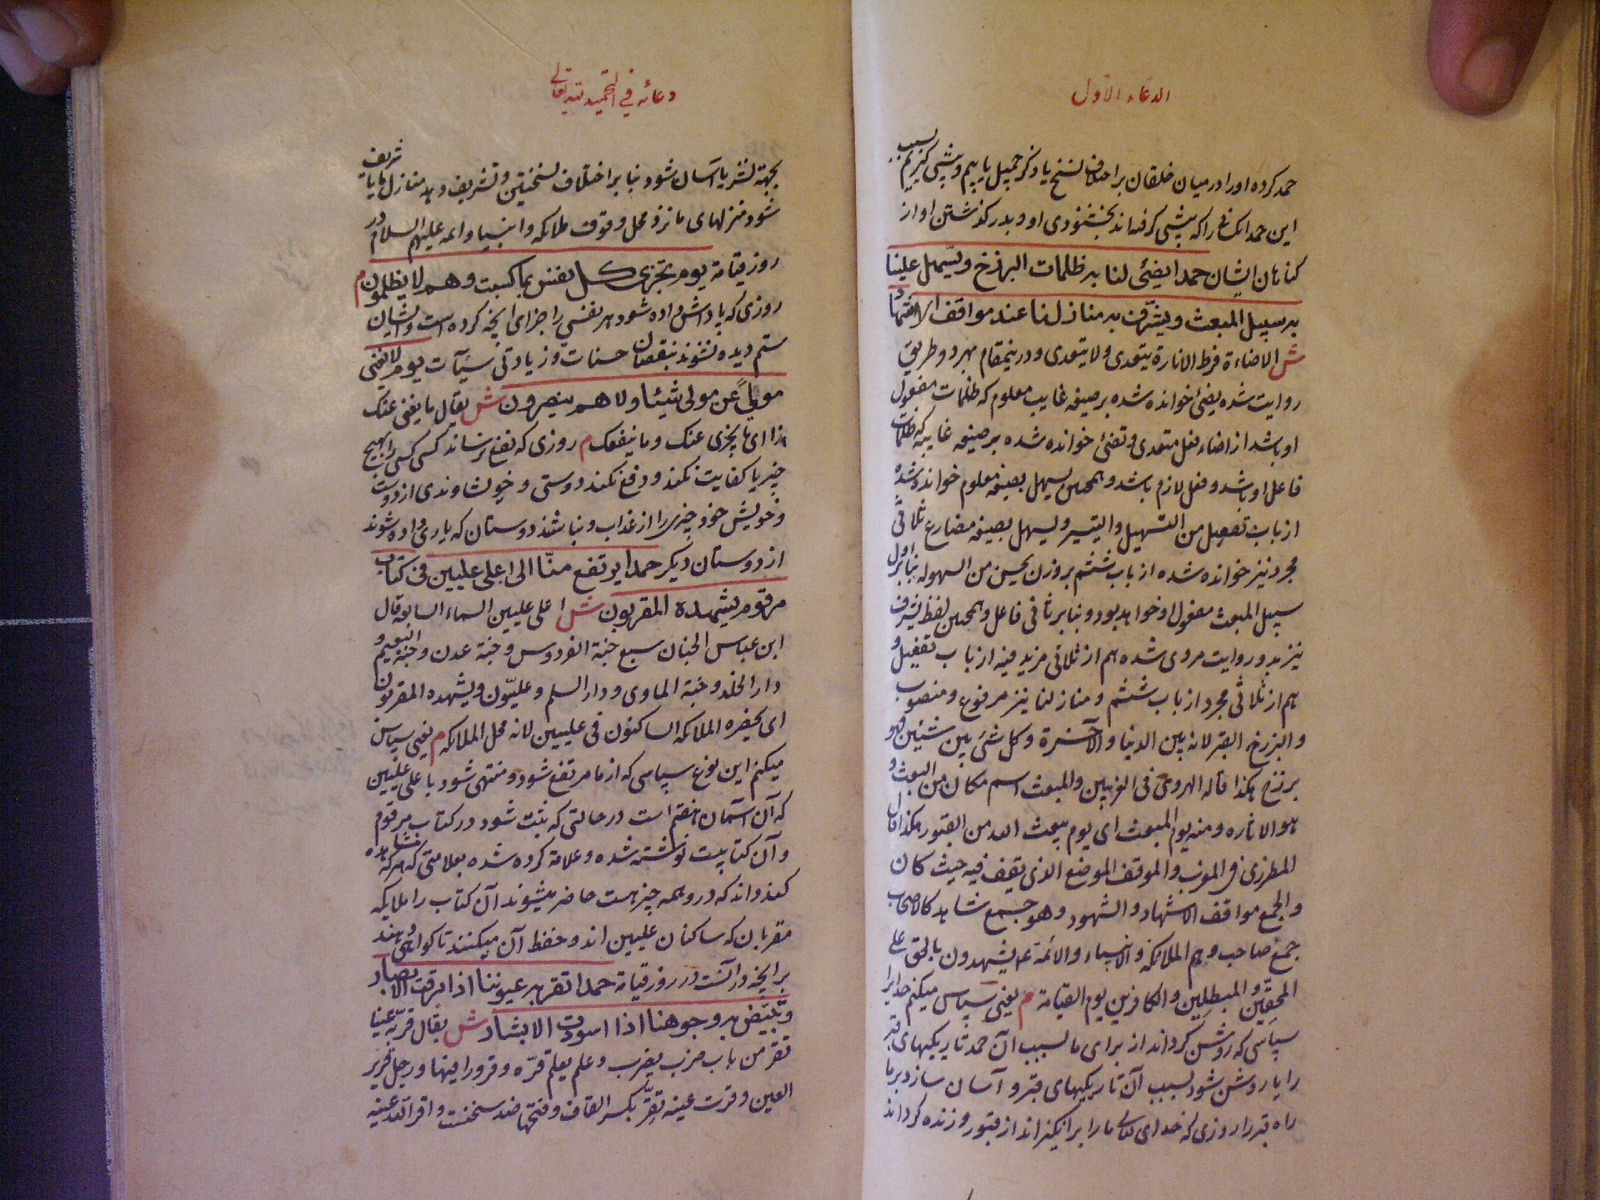 الدعاء الاول
حمد کرده او را در میان خلقان بر اختلاف نسخ یا ذکر جمیل یابیم و پیشی گیریم بسبب
این حمد آنکس را که پیشی گرفته اند بخشنودی او و بدر گذشتن او از
کناهان ایشان حمدا یضیٔ لنا به ظلمات البرزخ و یسهل علینا
به سبیل المبعث و یشرف به منازلنا عند مواقف الاشهاد
ش الاضاءة فرط الانارة یتعدی ولا یتعدی و درینمقام بهر دو طریق
روایت شده یضیٔ خوانده شده بر صیغه غایب معلوم که ظلمات مفعول
او باشد از اضاء فعل متعدی و تضیٔ خوانده شده بر صیغه غایبه که ظلمات
فاعل او باشد و فعل لازم باشد و همچنین یسهل بصیغه معلوم خوانده شده
از باب تفعیل من التسهیل والتیسیر و یسهل بصیغه مضارع ثلاثی
مجرد نیز خوانده شده از باب ششم بر وزن یحسن من السهوله بنا بر اول
سبیل المبعث مفعول او خواهد بود و بنا بر ثانی فاعل و همچنین لفظ یشرف
نیز بدو روایت مروی شده هم از ثلاثی مزید فیه از باب تفعیل و
هم از ثلاثی مجرد از باب ششم و منازلنا نیز مرفوع و منصوب
و البرزخ القبر لانه بین الدنیا و الآخرة و کل شیٔ بین شیئین فهو
برزخ هکذا قاله الهروی فی الغریبین والمبعث اسم مکان من البعث و
هو الاثاره و منه یوم المبعث ای یوم یبعث الله من القبور هکذا قال
المطرزی فی المغرب والموقف الموضع الذی تقف فیه حیث کان
و الجمع مواقف الاشهاد و الشهود و هو جمع شاهد کالاصحاب
جمع صاحب و هم الملائکة و الانبیاء و الائمة ع یشهدون بالحق علی
المحقین و المبطلین و الکافرین یوم القیامة م یعنی سپاس میکنم خدایرا
سپاسی که روشن کرداند از برای ما بسبب آن حمد تاریکیهای قبر
را یا روشن شود بسبب آن تاریکیهای قبر و آسان سازد بر ما
راه قبر را روزی که خدای تعالی ما را بر انکیزاند از قبور و زنده کرداند
دعائه فی التحمید لله تعالی
بجهة نشر یا آسان شود بنا بر اختلاف نسختین و تشریف دهد منازل ما یا شریف
شود منزلهای ما نزد محل وقوف ملائکه و انبیا و ائمه علیهم السلام در
روز قیامة یوم تجزی کل نفس بما کسبت و هم لا یظلمون م
روزی که پاداش داده شود هر نفسی را جزای آنچه کرده است و ایشان
ستم دیده نشوند بنقصان حسنات و زیادتی سیئآت یوم لا یغنی
مولی عن مولی شیئا ولا هم ینصرون ش یقال ما یغنی عنک
هذا ای ما یجزی عنک و ما ینفعک م روزی که نفع نرساند کسی کسی را بهیچ
چیز یا کفایت نکند و دفع نکند دوستی و خویشاوندی از دوست
و خویش خود چیزی را از عذاب و نباشند دوستان که یاری داده شوند
از دوستان دیگر حمدا یرتفع منا الی اعلی علیین فی کتاب
مرقوم یشهده المقربون ش اعلی علیین السماء السابعه قال
ابن عباس الجنان سبع جنة الفردوس و جنة عدن و جنة النعیم و
دار الخلد و جنة الماوی و دار السلم و علیون و یشهده المقربون
ای یحضره الملائکه الساکنون فی علیین لانه محل الملائکه م یعنی سپاس
میکنم این نوع سپاسی که از ما مرتفع شود و منتهی شود با علی علیین
که آن آسمان هفتم است در حالتی که ثبت شود در کتاب مرقوم
و آن کتابیست نوشته شده و علامة کرده شده بعلامتی که هر که مشاهده
کند داند که درو همه چیز هست حاضر میشوند آن کتاب را ملایکه
مقربان که ساکنان علیین اند و حفظ آن میکنند تا کواهی دهند
بر آنچه در آنست در روز قیامة حمدا تقر به عیوننا اذا برقت الابصار
و تبیض به وجوهنا اذا اسودت الابشار ش یقال قر به عینا
تقر من باب ضرب یضرب و علم یعلم قره و قرورا فیهما و رجل قریر
العین و قرت عینه تقر بکسر القاف و فتحها ضد سخنت و اقر الله عینه